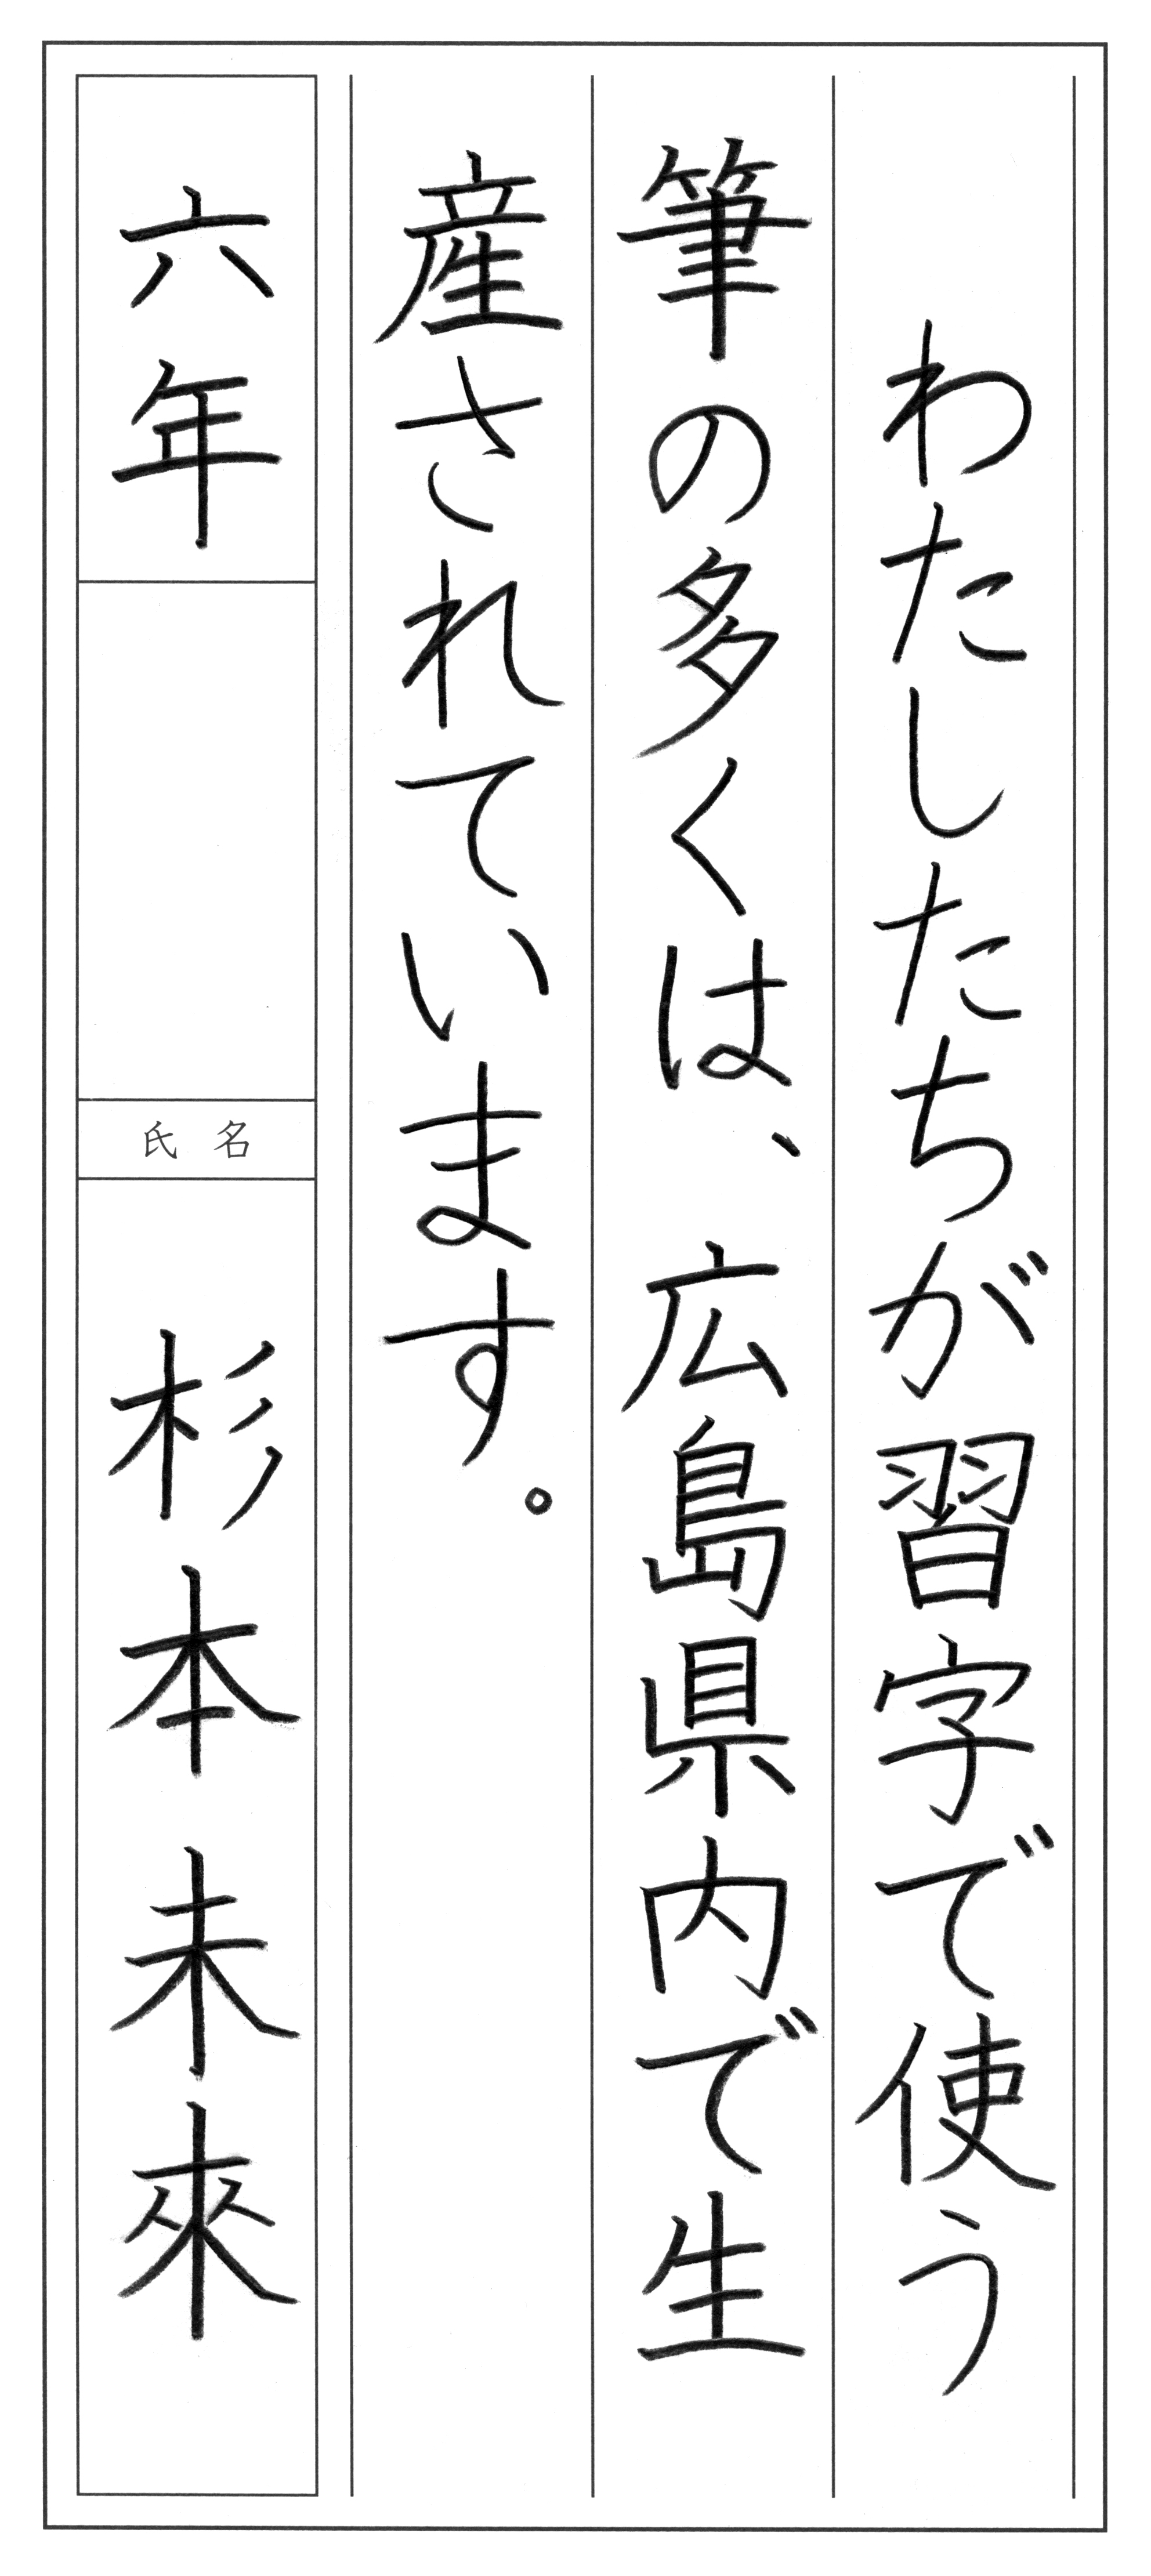 わたしたちが習字で使う
筆の多くは、広島県内で生
産されています。
六年
氏名
杉本未來